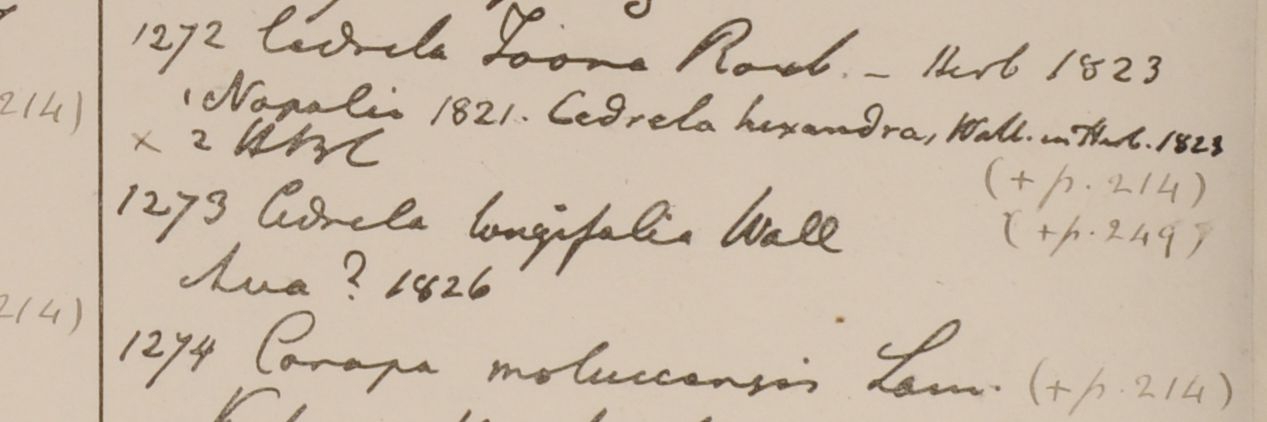 1272 Cedrela Toona Roxb. – Herb 1823
214)
1 Napalia 1821. Cedrela hexandra, Wall. in Herb. 1823
× 2 HBC
(+ p. 214)
1273 Cedrela longifolia Wall (+p. 249)
Ava ? 1826
214)
1274 Carapa moluccensis Lam. (+ p. 214)